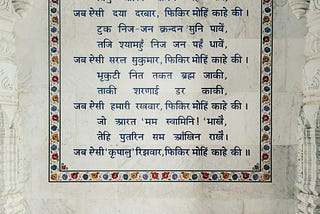 जब ऐसी दया दरबार, फिकिर मोहिं काहे की ।
टुक निज-जन क्रन्दन सुनि पावें,
तजि श्यामहुँ निज जन पहँ धावें,
जब ऐसी सरल सुकुमार, फिकिर मोहिं काहे की ।
भृकुटी नित तकत ब्रह्म जाकी,
ताकी शरणाई डर काकी,
जब ऐसी हमारी रखवार, फिकिर मोहिं काहे की ।
जो आरत 'मम स्वामिनि !' भाखैं,
तेहि पुतरिन सम आँखिन राखैं।
जब ऐसी 'कृपालु' रिझवार, फिकिर मोहिं काहे की ॥